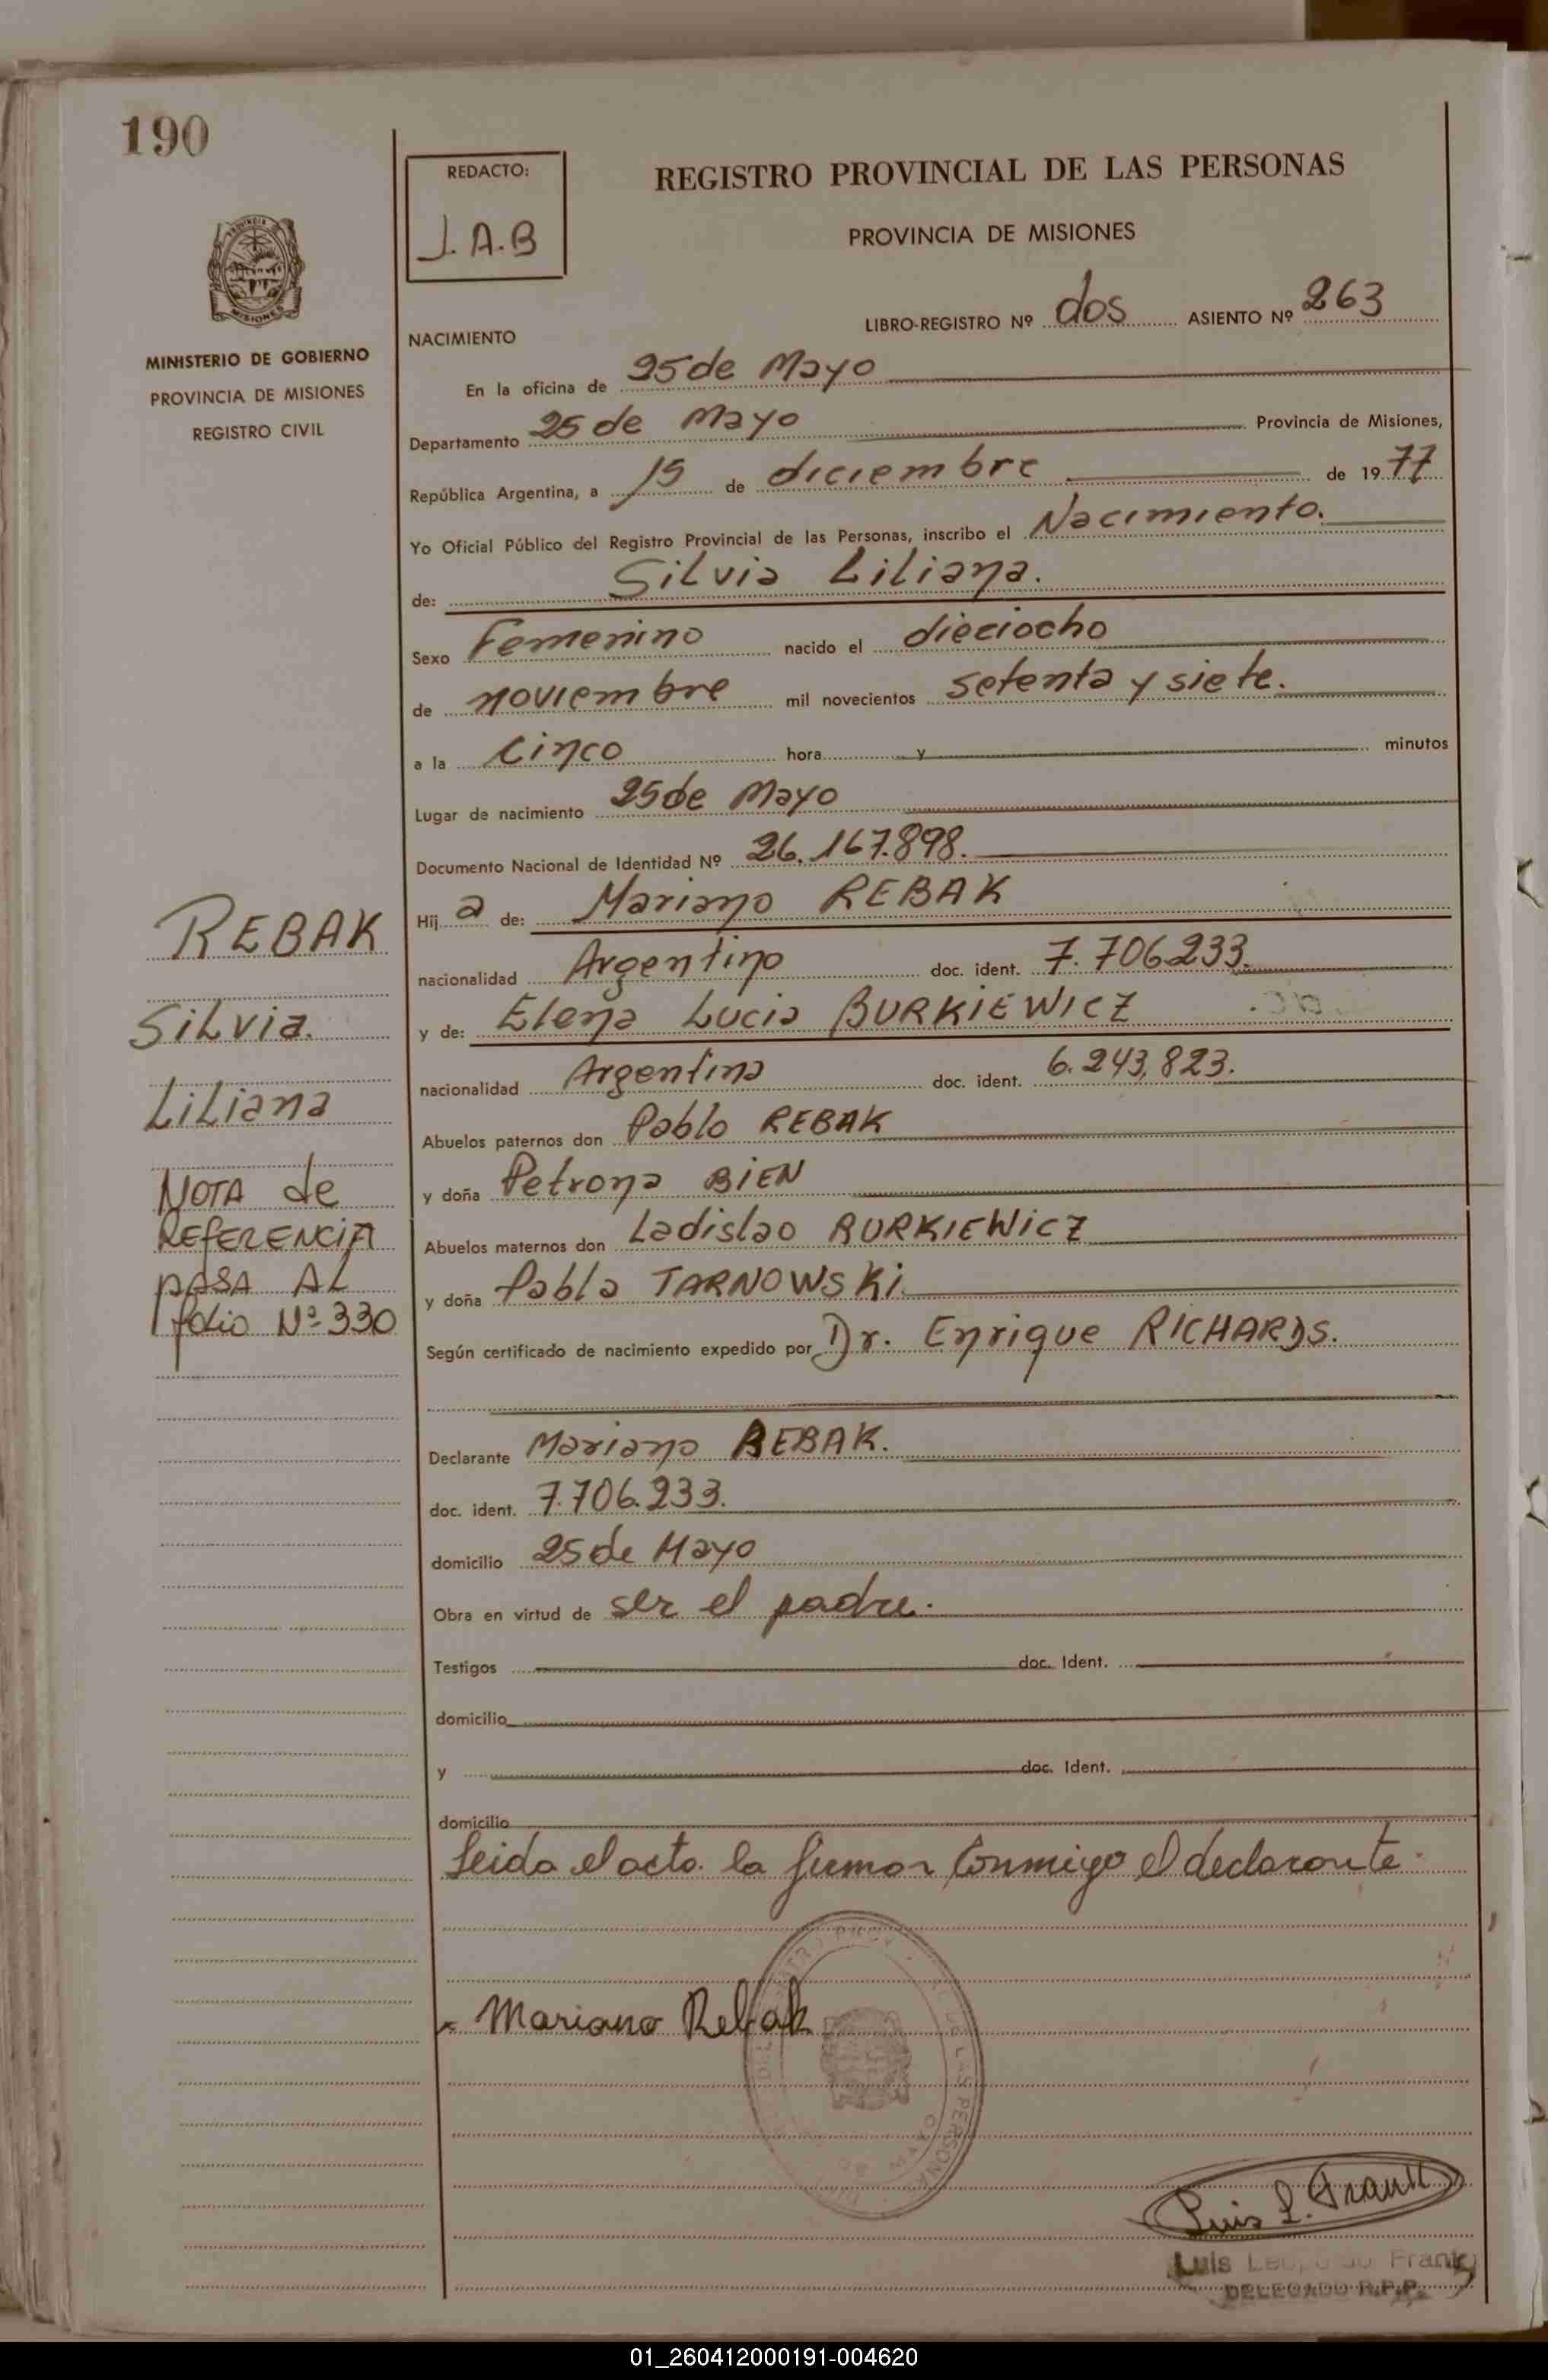 190
REDACTO:
J.A.B
REGISTRO PROVINCIAL DE LAS PERSONAS
PROVINCIA DE MISIONES
MISIONES
MINISTERIO DE GOBIERNO
PROVINCIA DE MISIONES
REGISTRO CIVIL
LIBRO-REGISTRO Nº dos ASIENTO Nº 263
NACIMIENTO
En la oficina de 25 de Mayo
Departamento 25 de Mayo Provincia de Misiones,
República Argentina, a 15 de diciembre de 1977
Yo Oficial Público del Registro Provincial de las Personas, inscribo el Nacimiento.
de: Silvia Liliana.
Sexo Femenino nacido el dieciocho
de noviembre mil novecientos setenta y siete.
a la cinco hora y minutos
Lugar de nacimiento 25 de Mayo
Documento Nacional de Identidad Nº 26.167.898.
Hij a de: Mariano REBAK
nacionalidad Argentino doc. ident. 7.706233.
y de: Elena Lucia BURKIEWICZ
nacionalidad Argentina doc. ident. 6.243.823.
Abuelos paternos don Pablo REBAK
y doña Petrona BIEN
Abuelos maternos don Ladislao BURKIEWICZ
y doña Pabla TARNOWSKI.
Según certificado de nacimiento expedido por Dr. Enrique RICHARDS.
Declarante Mariano REBAK.
doc. ident. 7.706.233.
domicilio 25 de Mayo
Obra en virtud de ser el padre.
Testigos doc. Ident.
domicilio
y doc. Ident.
domicilio
Leida el acta. la firman Conmigo el declarante.
REBAK
Silvia.
Liliana
NOTA de
REFERENCIA
PASA AL
folio Nº 330
Mariano Rebak
Luis L. Frank
Luis Leopoldo Frank
DELEGADO R.P.P.
01_260412000191-004620